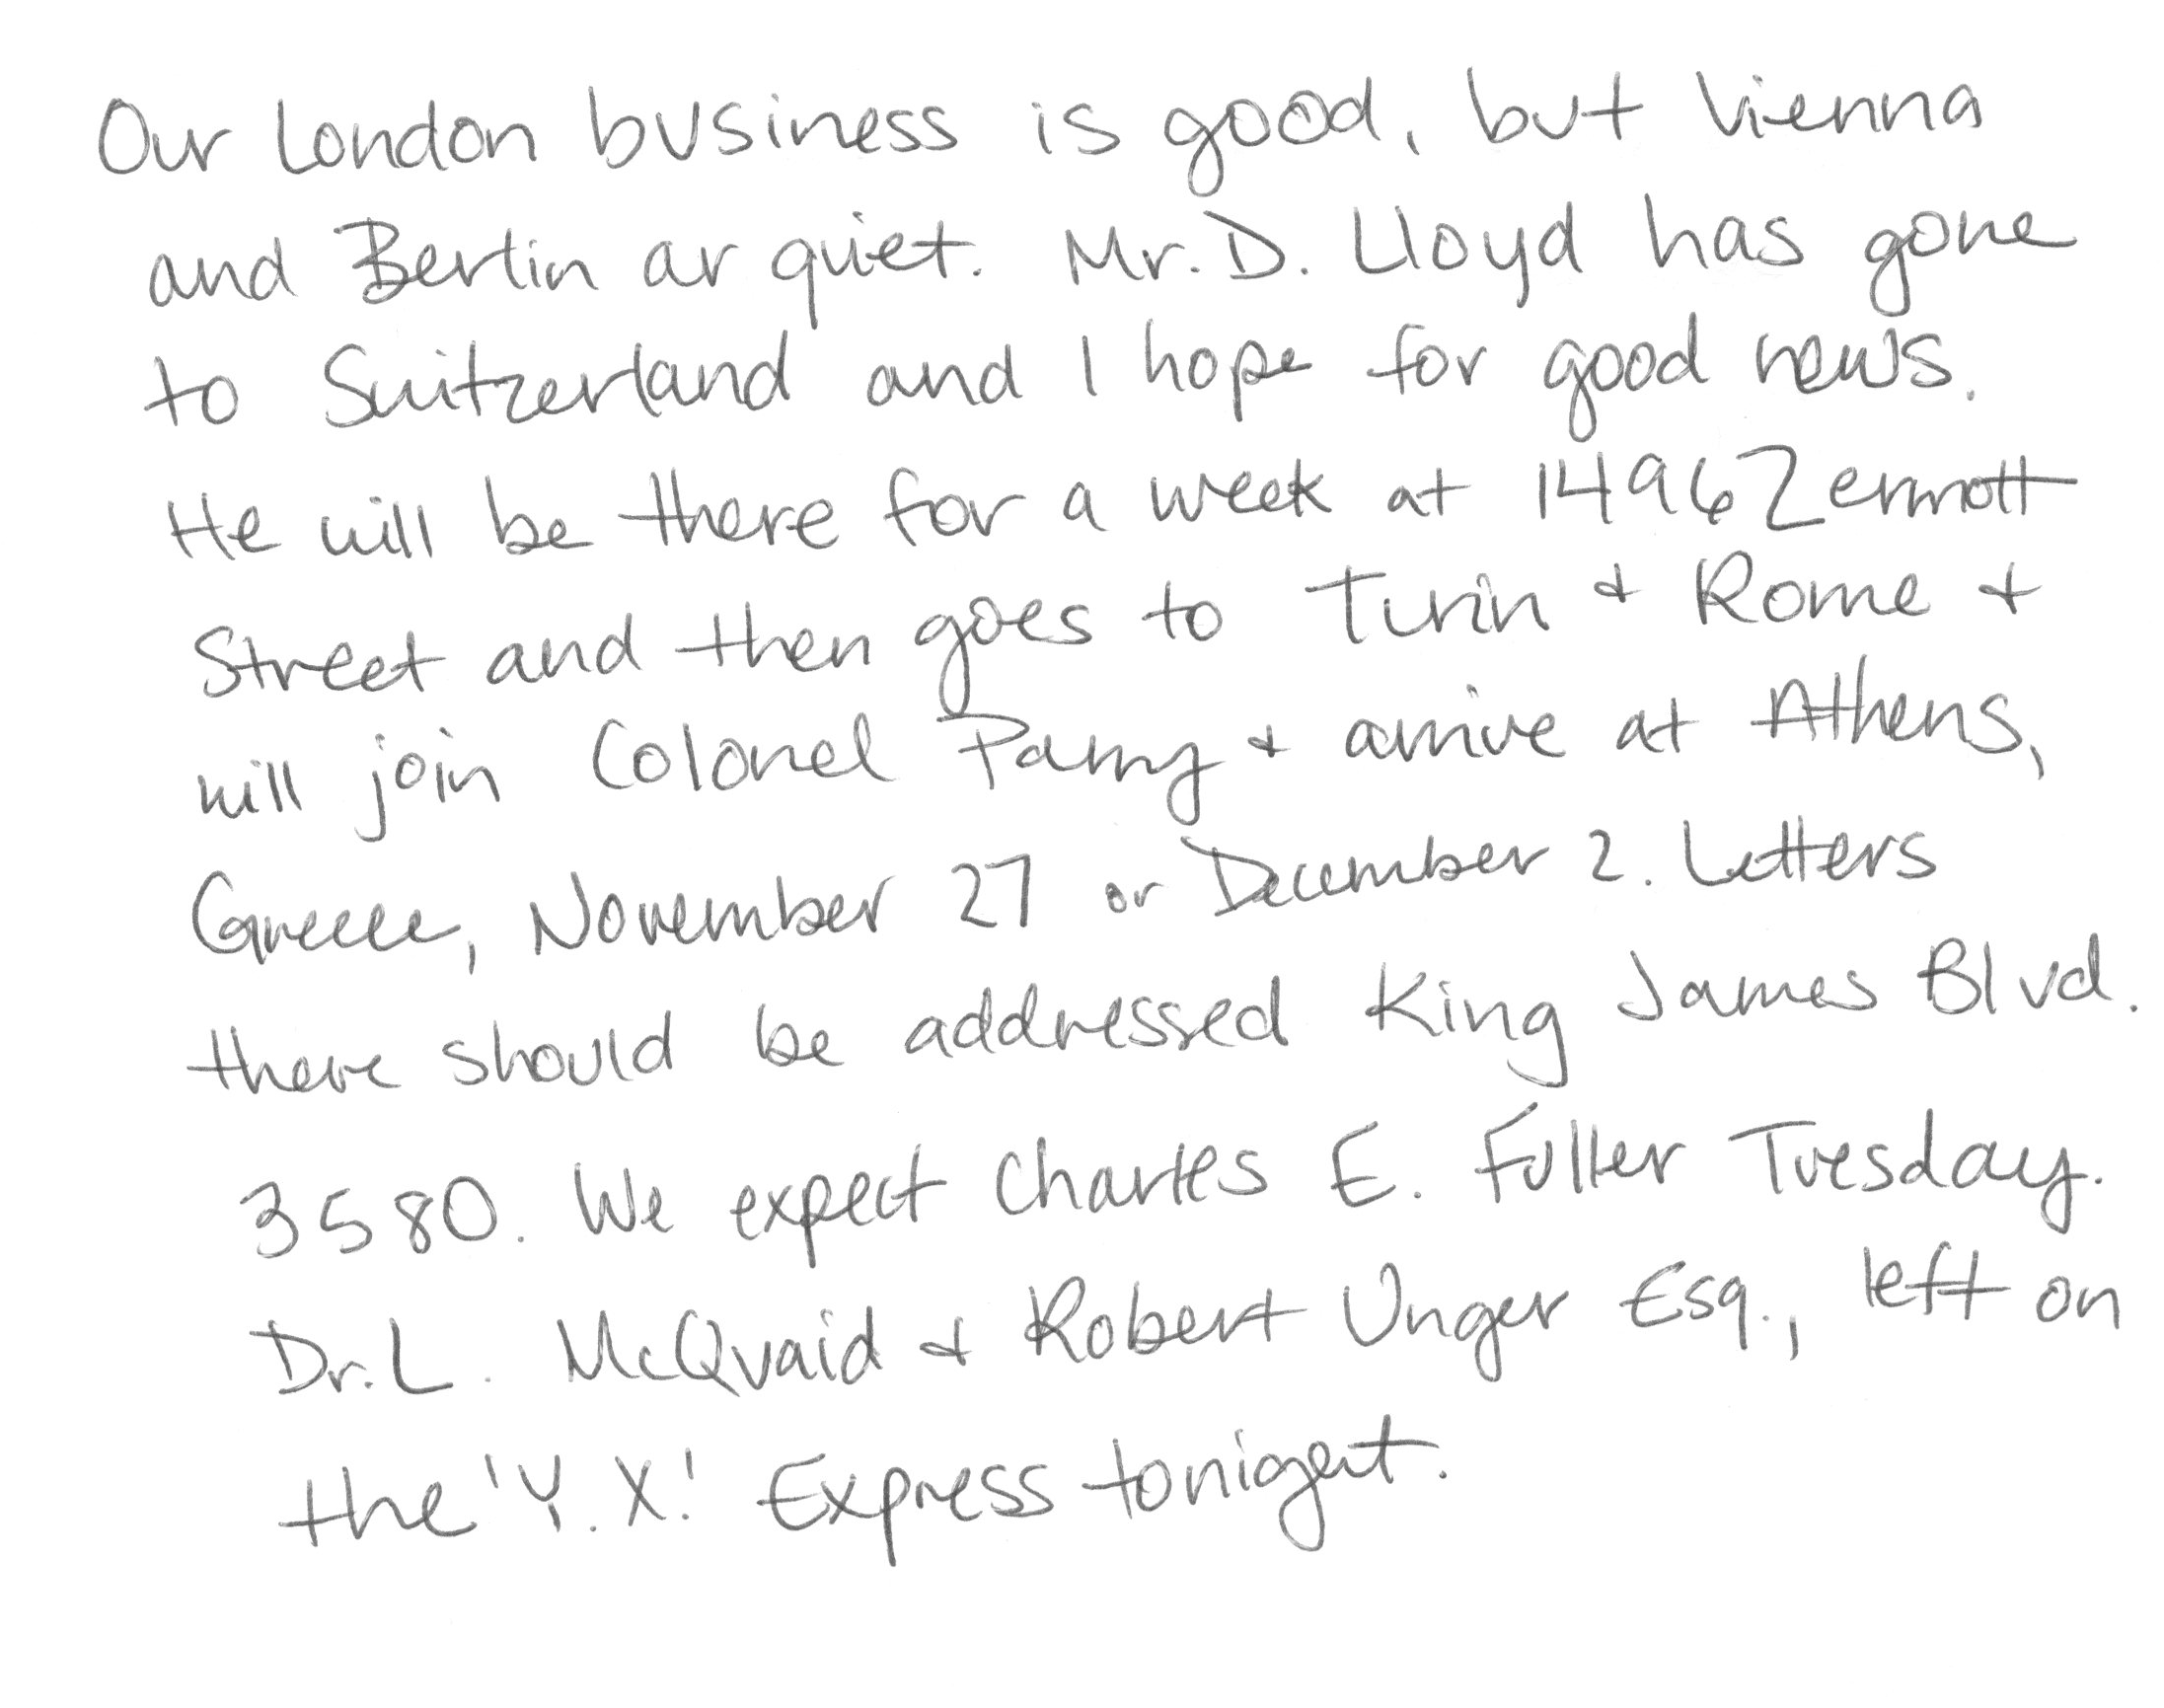 Our London business is good, but Vienna
and Berlin ar quiet. Mr. D. Lloyd has gone
to Switzerland and I hope for good news.
He will be there for a week at 1496 Zermott
Street and then goes to Turin + Rome +
will join Colonel Parry + arrive at Athens,
Greece, November 27 or December 2. Letters
there should be addressed King James Blvd.
3580. We expect Charles E. Fuller Tuesday.
Dr. L. McQuaid + Robert Unger Esq., left on
the 'Y. X.' Express tonight.